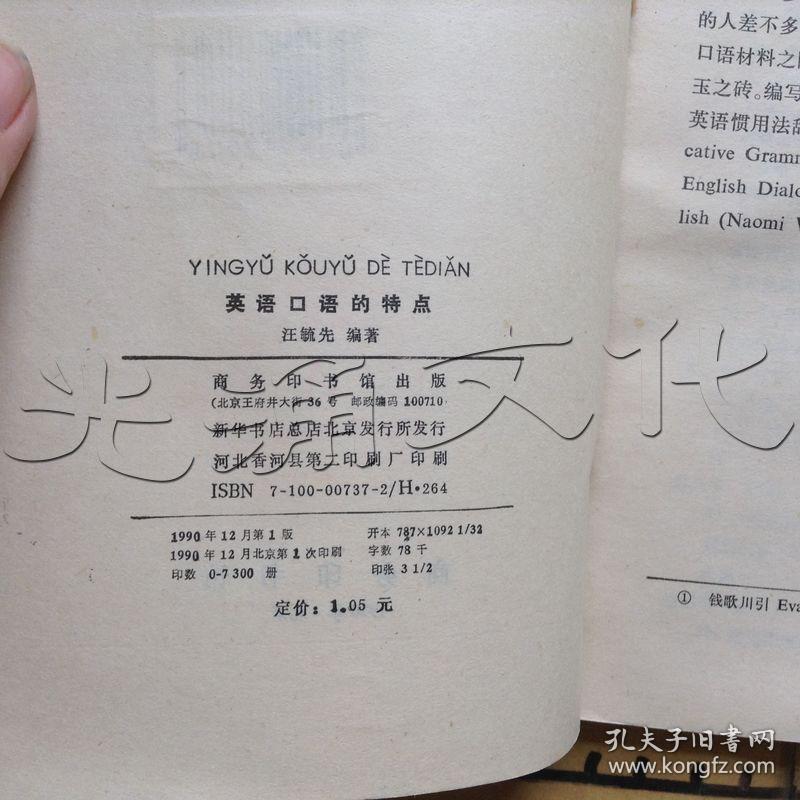 YINGYǓ KǑUYǓ DÈ TÈDIǍN
英语口语的特点
汪毓先 编著
商务印书馆出版
(北京王府井大街36号 邮政编码 100710
新华书店总店北京发行所发行
河北香河县第二印刷厂印刷
ISBN 7-100-00737-2/H·264
1990年12月第1版 开本 787×1092 1/32
1990年12月北京第1次印刷 字数 78千
印数 0-7300 册 印张 3 1/2
定价: 1.05 元
的人差不多
口语材料之
玉之砖。编写
英语惯用法
cative Gramm
English Dialo
lish (Naomi
① 钱歌川引 Eva
光角文化
孔夫子旧书网
www.kongfz.com